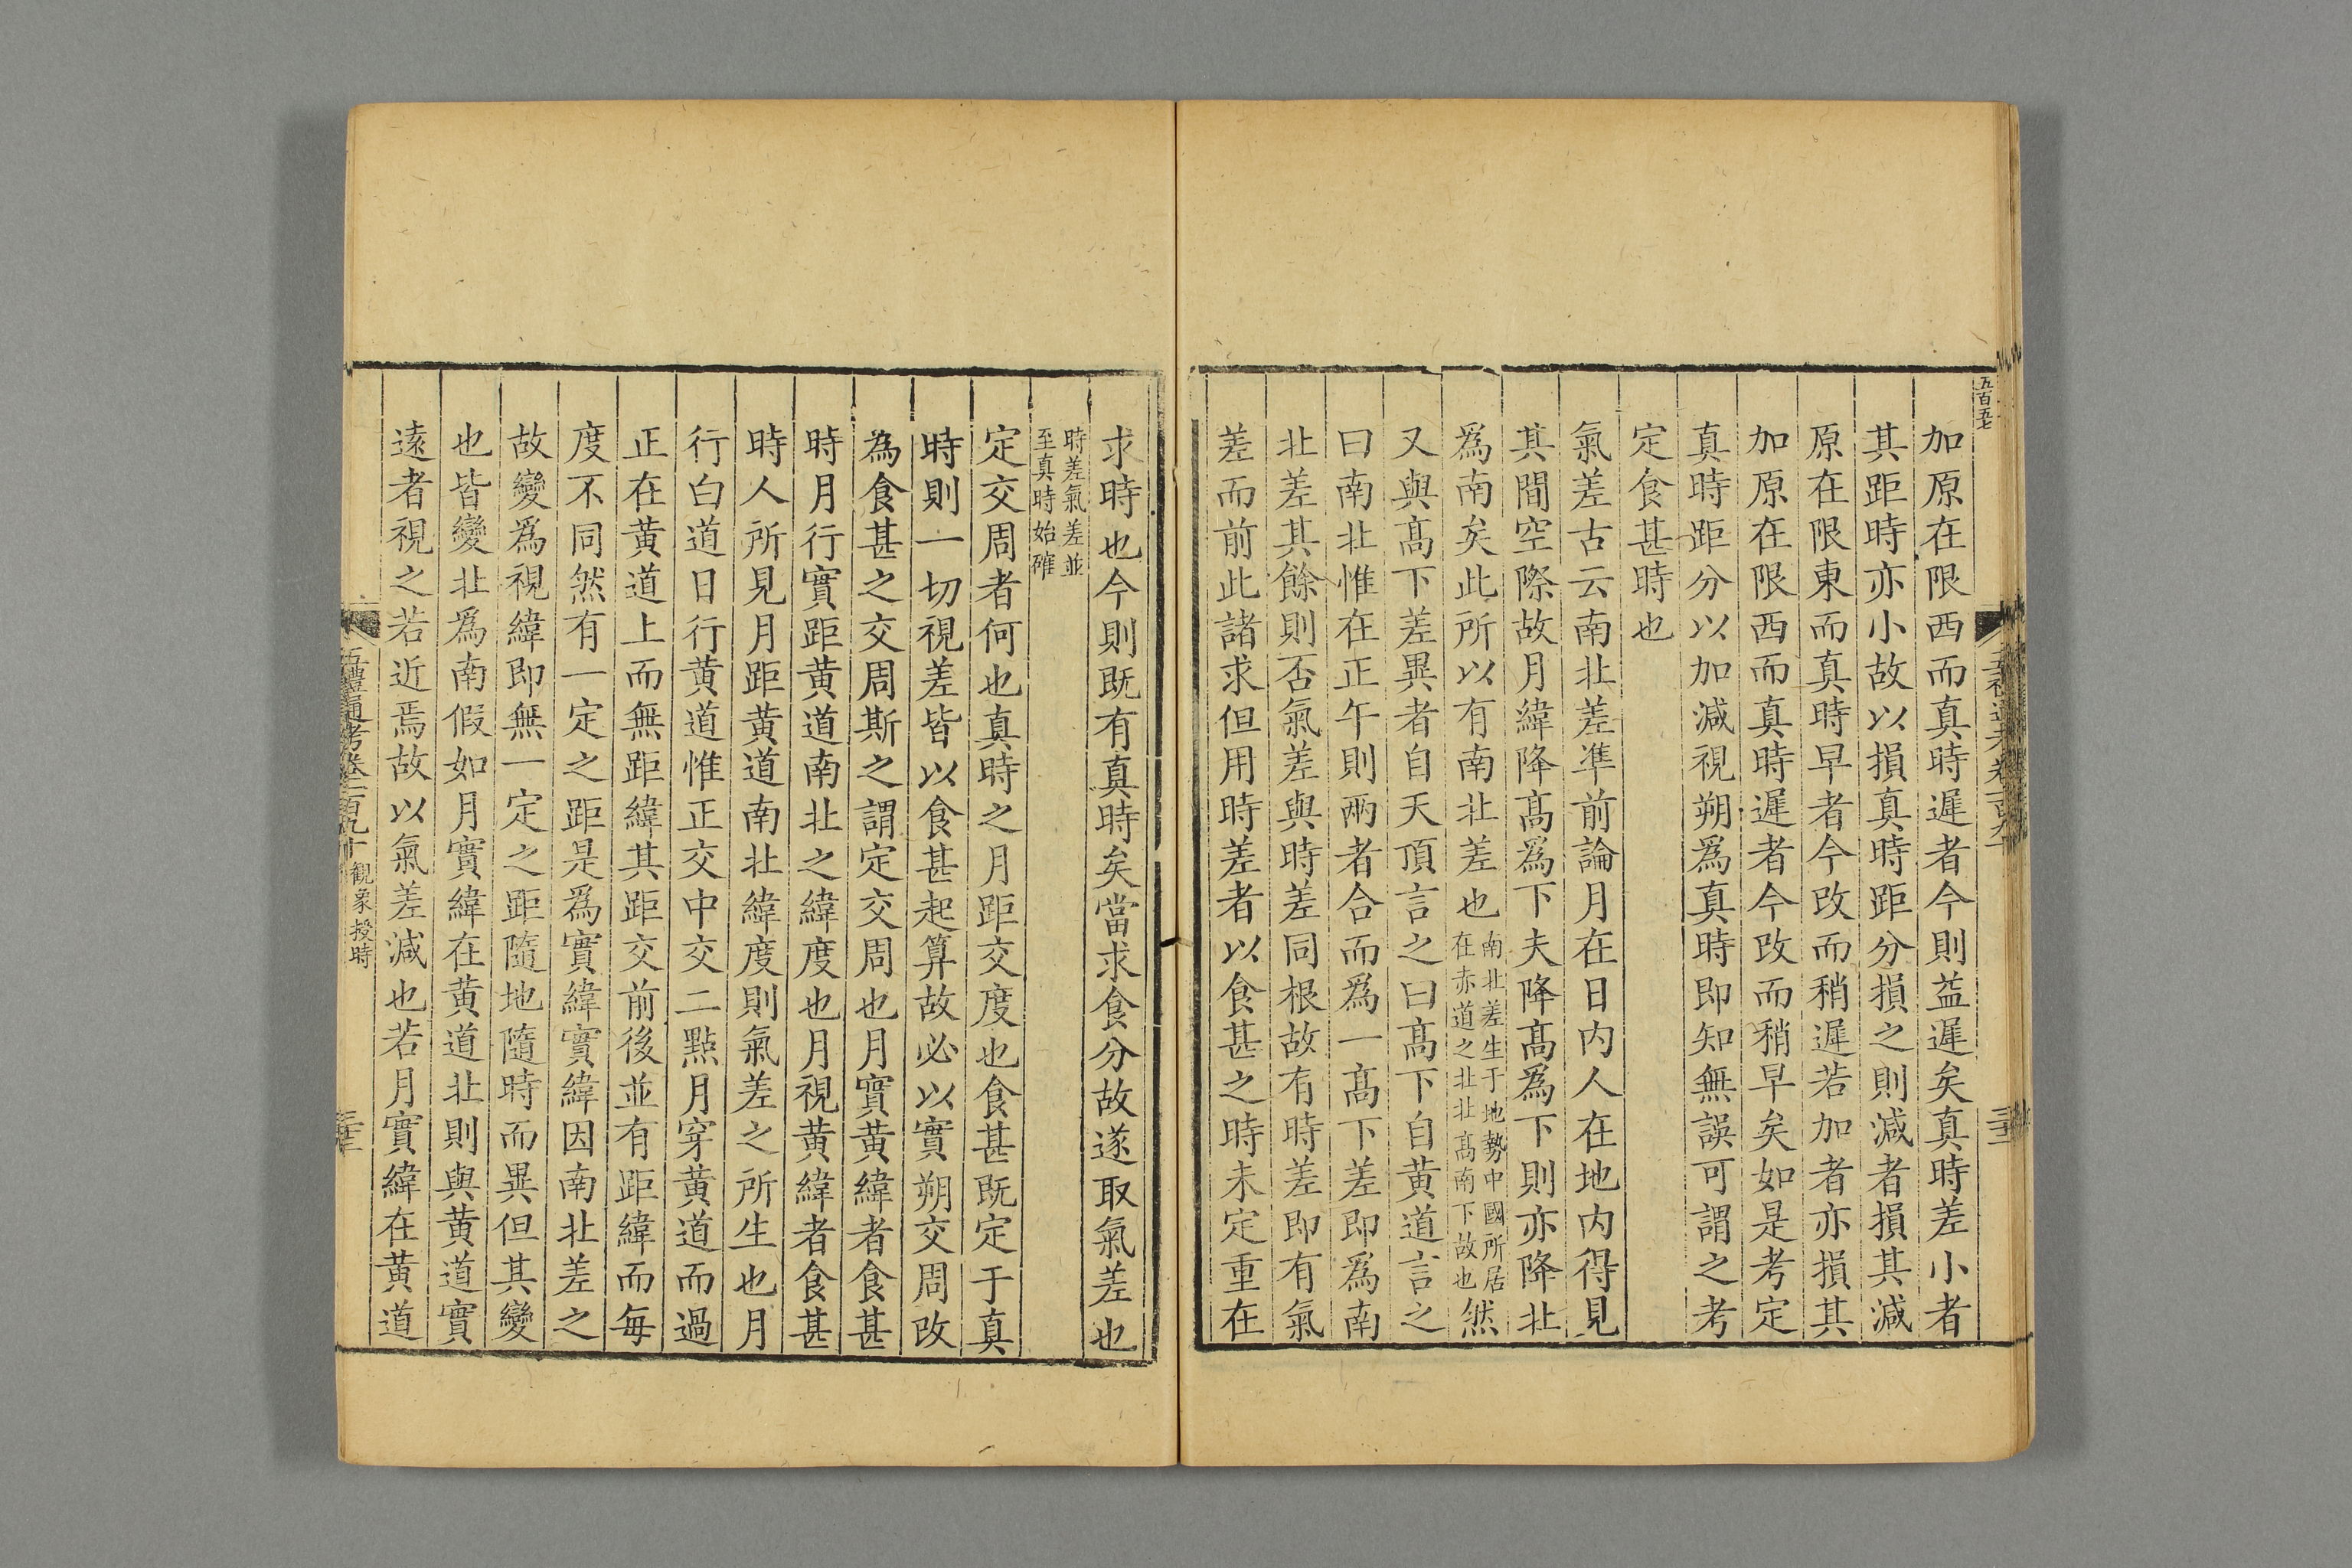 五百五七
加原在限西而真時遲者今則益遲矣真時差小者
其距時亦小故以損真時距分損之則減者損其減
原在限東而真時早者今改而稍遲若加者亦損其
加原在限西而真時遲者今改而稍早矣如是考定
真時距分以加減視朔爲真時即知無誤可謂之考
定食甚時也
氣差古云南北差凖前論月在日内人在地内得見
其間空際故月緯降髙爲下夫降髙爲下則亦降北
爲南矣此所以有南北差也南北差生于地勢中國所居在赤道之北北髙南下故也然
又與髙下差異者自天頂言之曰髙下自黄道言之
曰南北惟在正午則兩者合而爲一髙下差即爲南
北差其餘則否氣差與時差同根故有時差即有氣
差而前此諸求但用時差者以食甚之時未定重在
求時也今則既有真時矣當求食分故遂取氣差也
時差氣差並至真時始確
定交周者何也真時之月距交度也食甚既定于真
時則一切視差皆以食甚起算故必以實朔交周改
為食甚之交周斯之謂定交周也月實黄緯者食甚
時月行實距黄道南北之緯度也月視黄緯者食甚
時人所見月距黄道南北緯度則氣差之所生也月
行白道日行黄道惟正交中交二㸃月穿黄道而過
正在黄道上而無距緯其距交前後並有距緯而每
度不同然有一定之距是爲實緯實緯因南北差之
故變爲視緯即無一定之距隨地隨時而異但其變
也皆變北爲南假如月實緯在黄道北則與黄道實
遠者視之若近焉故以氣差減也若月實緯在黄道
五禮通考卷一百九十 觀象授時